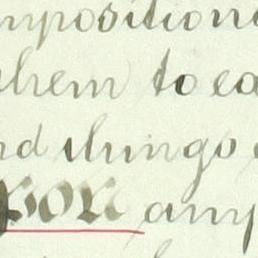 mpositions
them to ea
nd things
any